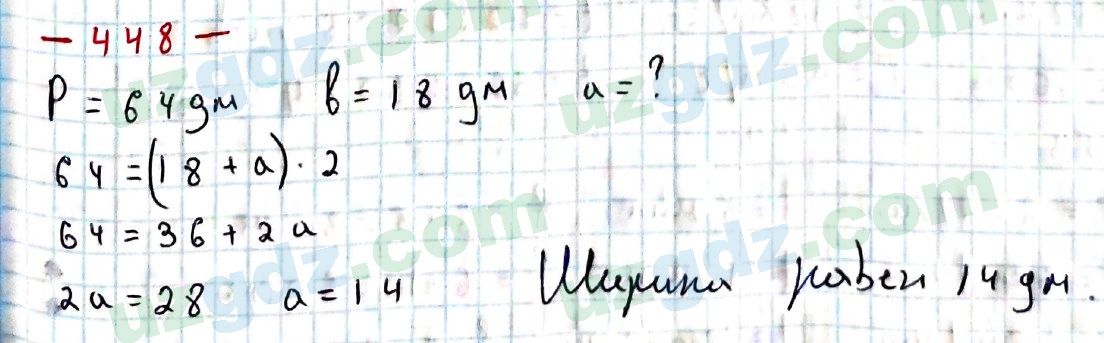 - 448 -
P = 64 дм b = 18 дм a = ?
64 = (18 + a) · 2
64 = 36 + 2a
2a = 28 a = 14 Ширина равен 14 дм.
uzgdz.com
uzgdz.com
uzgdz.com
uzgdz.com